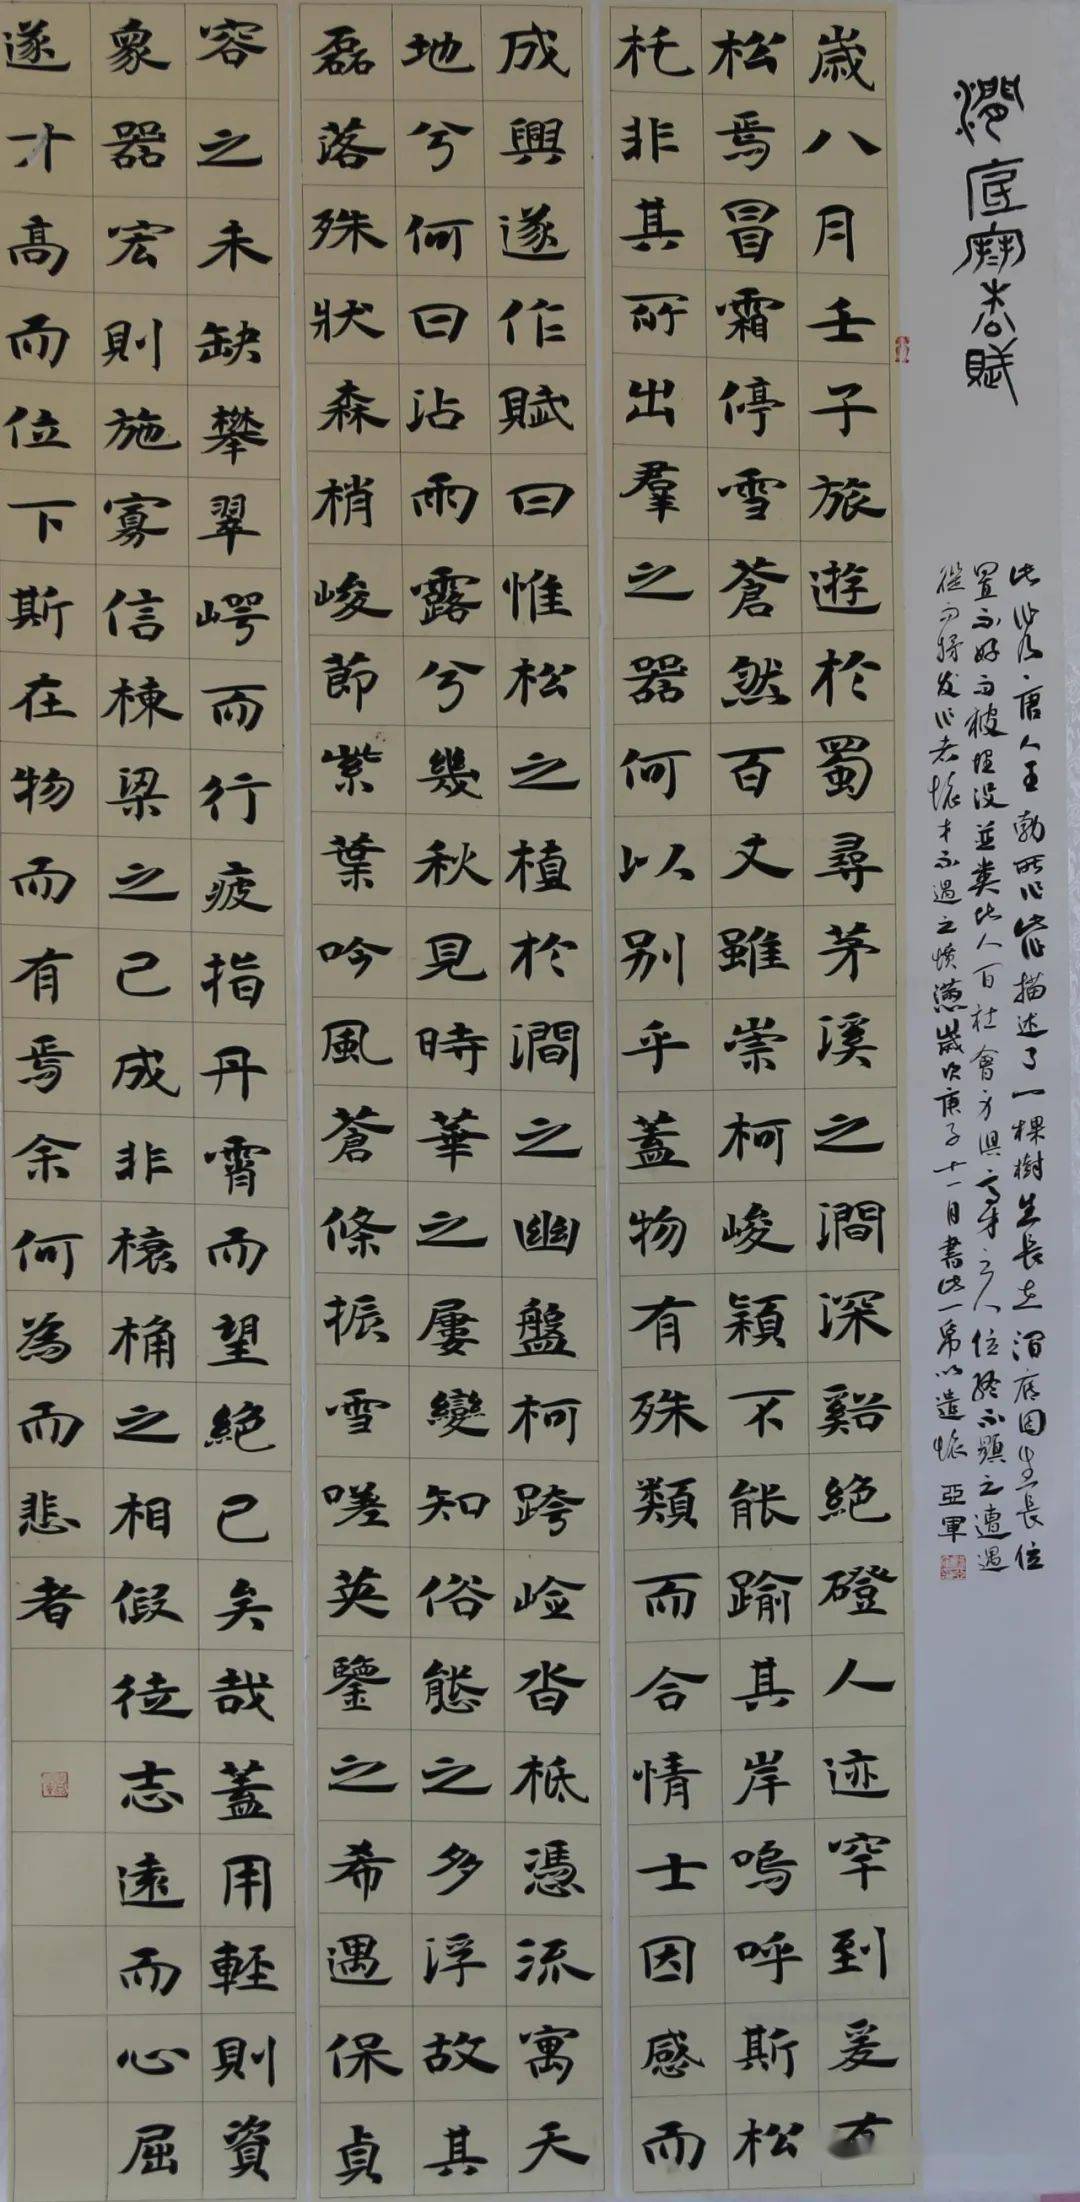 澗底寒松賦
此作乃唐人王勃所作描述了一棵樹生長在澗底因生長位
置不好而被埋没並類比人有社會才俱高才之人位終不顯之遭遇
從而抒发作者懷才不遇之憤懣歲次庚子十一月書此一帋以遣懷 亞軍
歲八月壬子旅遊於蜀尋茅溪之澗深谿絕磴人迹罕到爰有
松焉冒霜停雪蒼然百丈雖崇柯峻穎不能踰其岸嗚呼斯松
托非其所出羣之器何以別乎蓋物有殊類而合情士因感而
成興遂作賦曰惟松之植於澗之幽盤柯跨嶮沓柢憑流寓天
地兮何曰沾雨露兮幾秋見時華之屢變知俗態之多浮故其
磊落殊狀森梢峻節紫葉吟風蒼條振雪嗟英鑒之希遇保貞
容之未缺攀翠崿而行疲指丹霄而望絕已矣哉蓋用輕則資
象器宏則施寡信棟梁之已成非榱桷之相假徒志遠而心屈
遂才高而位下斯在物而有焉余何為而悲者